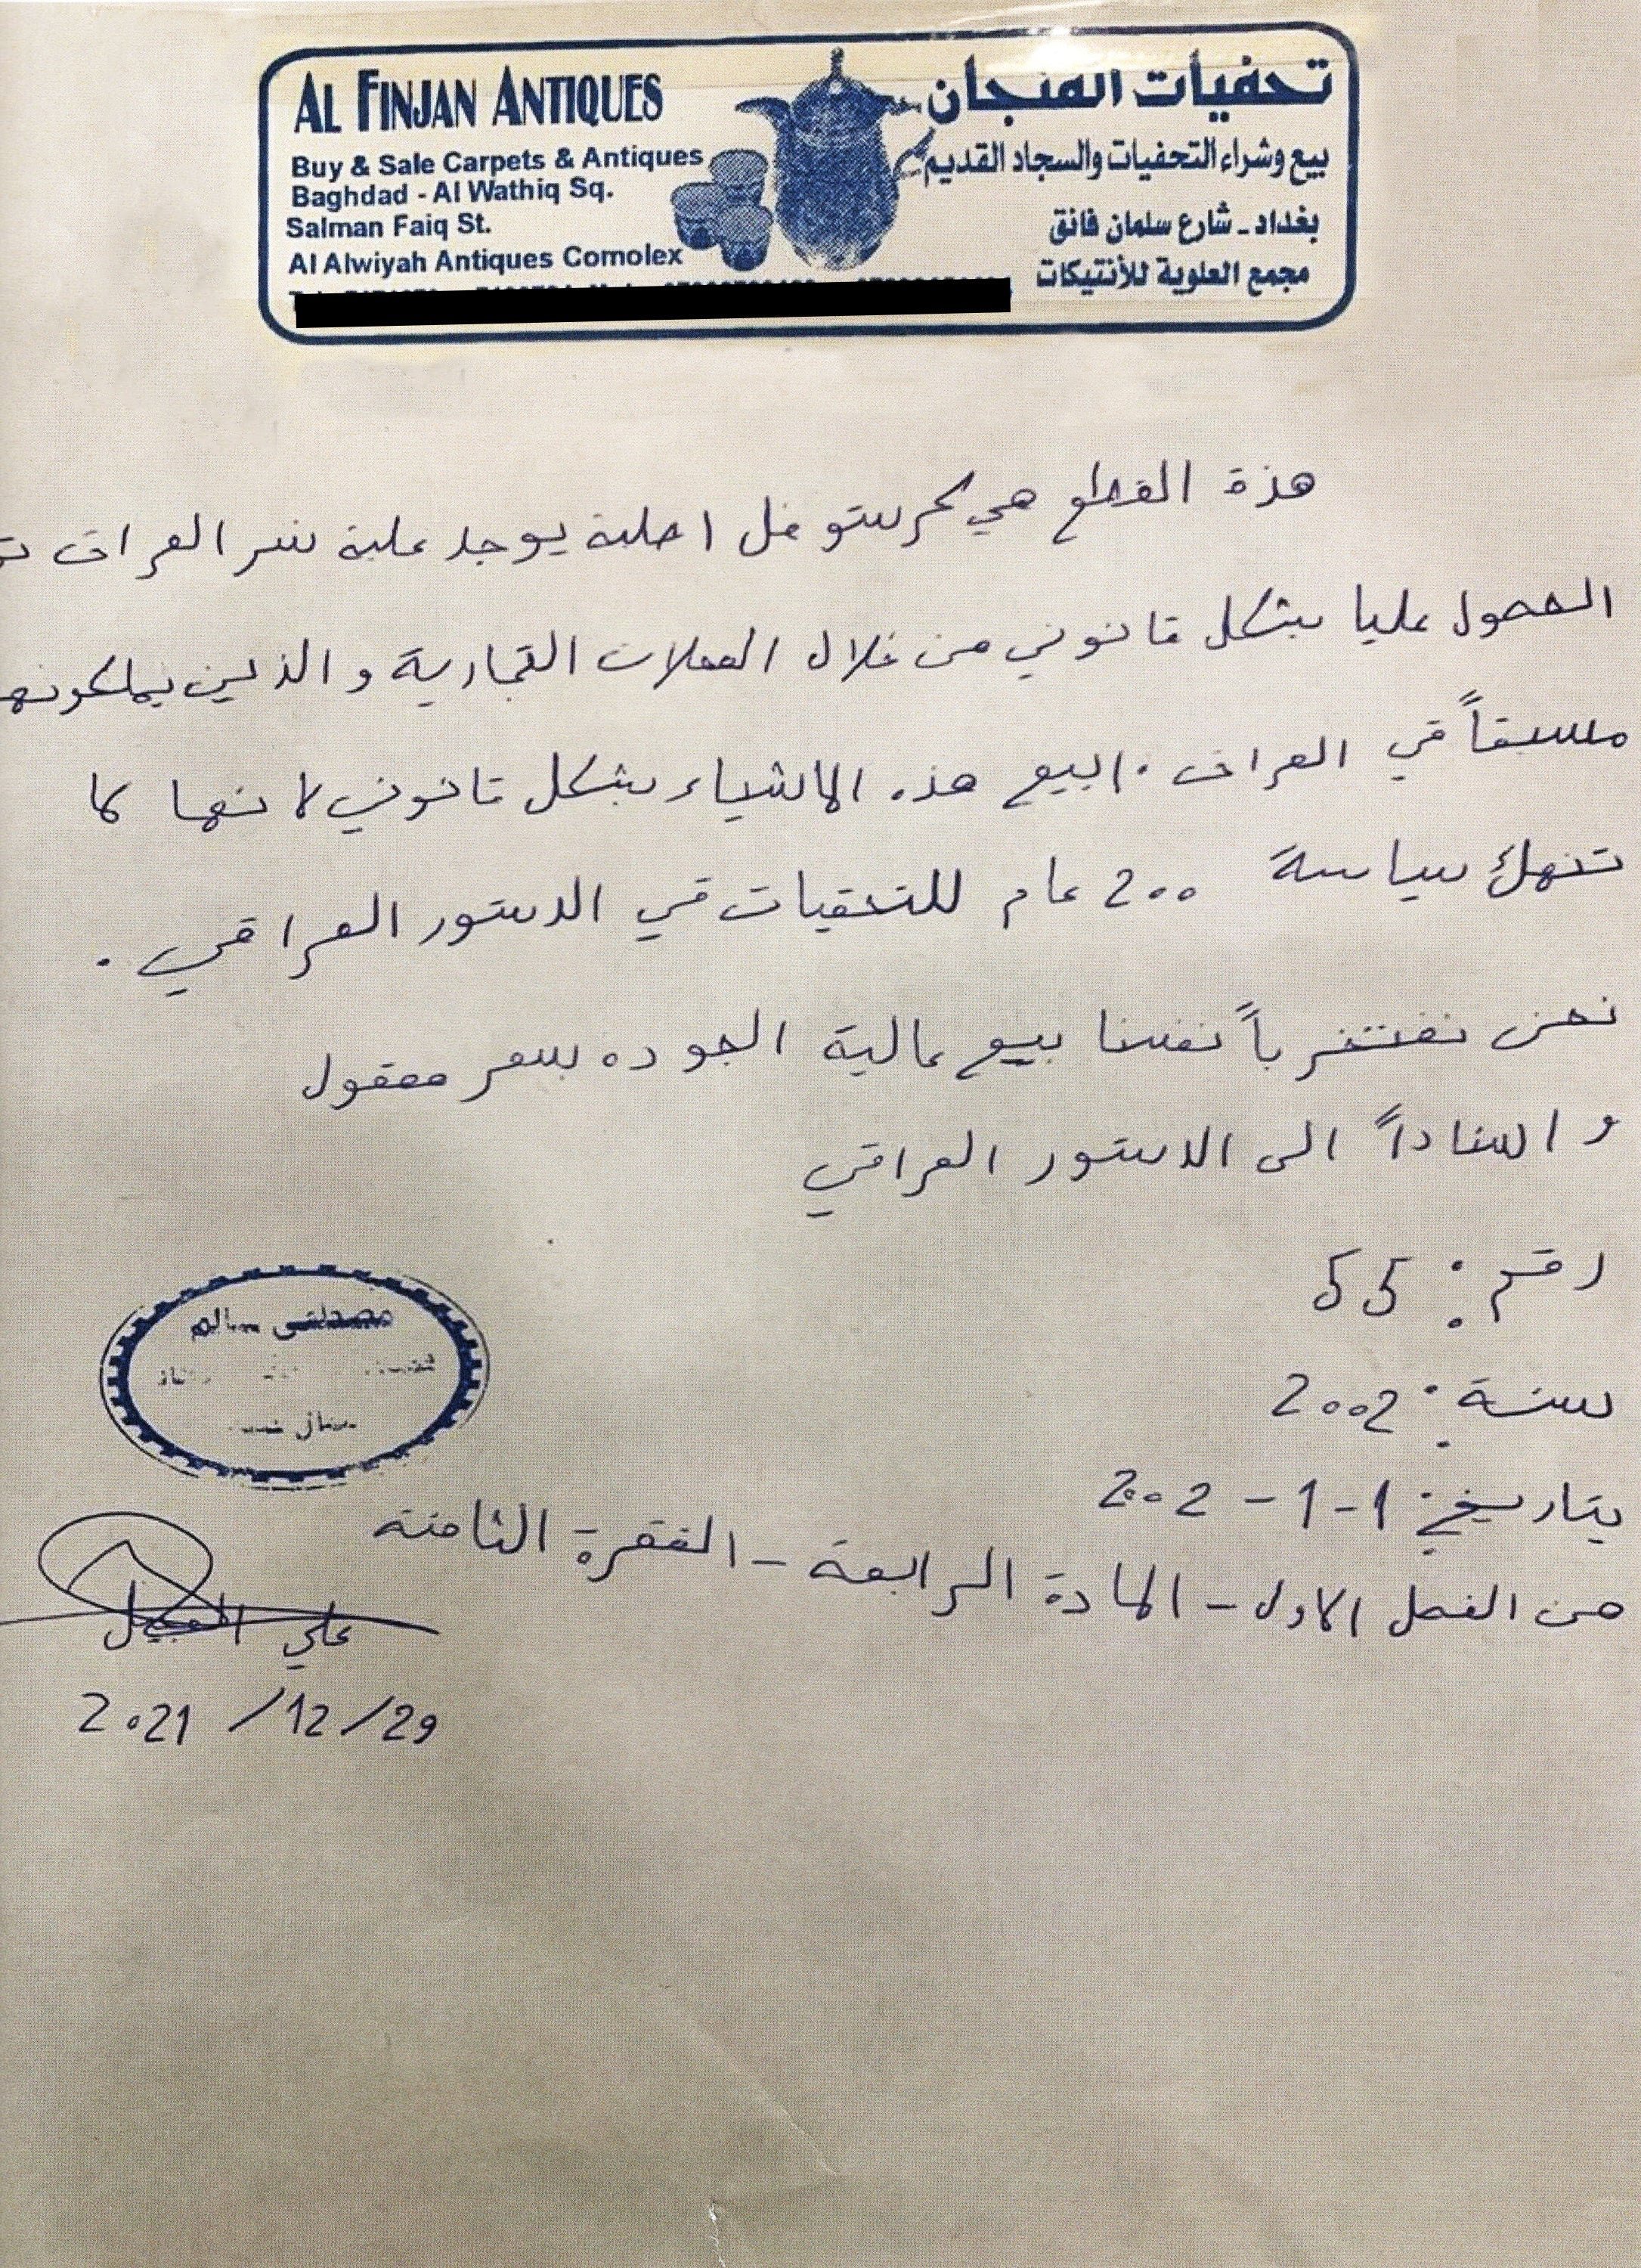 AL FINJAN ANTIQUES
Buy & Sale Carpets & Antiques
Baghdad - Al Wathiq Sq.
Salman Faiq St.
Al Alwiyah Antiques Comolex
تحفيات الفنجان
بيع وشراء التحفيات والسجاد القديم
بغداد - شارع سلمان فائق
مجمع العلوية للأنتيكات
هذة القطع هي كرستوفل اصلية يوجد علية نسر العراق
الحصول عليا بشكل قانوني من خلال المحلات التجارية والذين يملكونها
مسبقاً في العراق . البيع هذه الاشياء بشكل قانوني لانها لا
تنهك سياسة 200 عام للتحفيات في الدستور العراقي .
نحن نفتخر بأنفسنا بيع عالية الجوده بسعر معقول
و استناداً الى الدستور العراقي
رقم : 55
سنة : 2002
بتاريخ : 1-1-2002
من الفصل الاول - المادة الرابعة - الفقرة الثامنة
مصطفى سالم
علي
2021/12/29